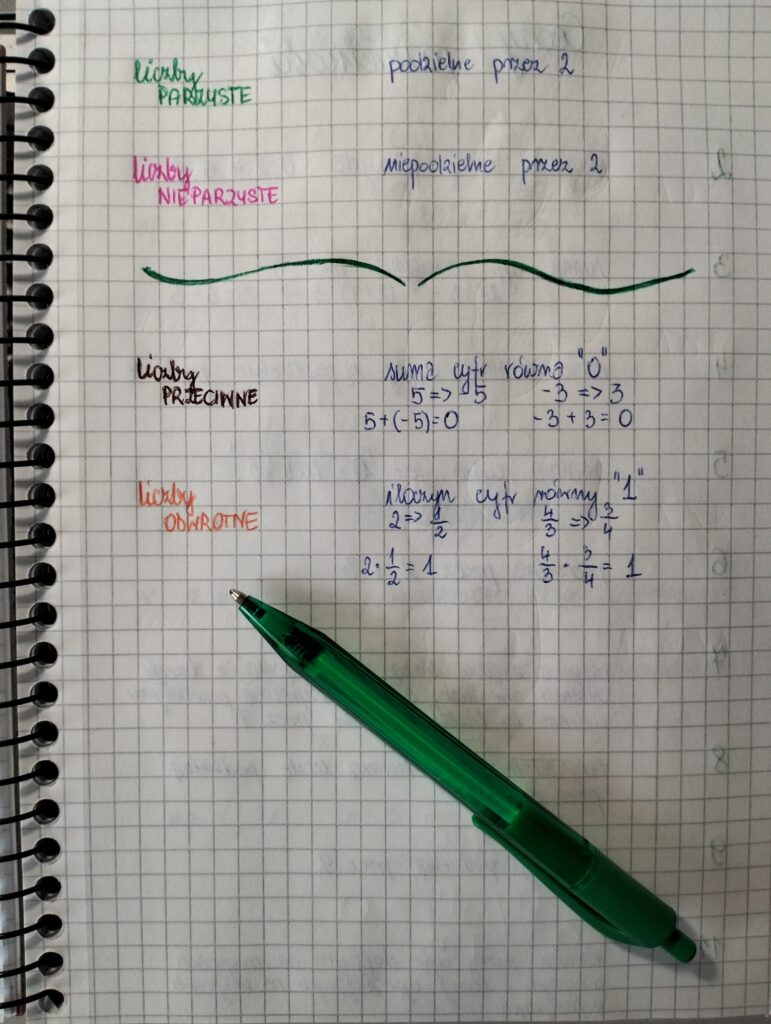 liczby podzielne przez 2
PARZYSTE
liczby niepodzielne przez 2
NIEPARZYSTE
liczby suma cyfr równa "0"
PRZECIWNE 5 => -5 -3 => 3
5+(-5)=0 -3+3=0
liczby iloczyn cyfr równy "1"
ODWROTNE 2 => 1/2 4/3 => 3/4
2·1/2=1 4/3·3/4=1